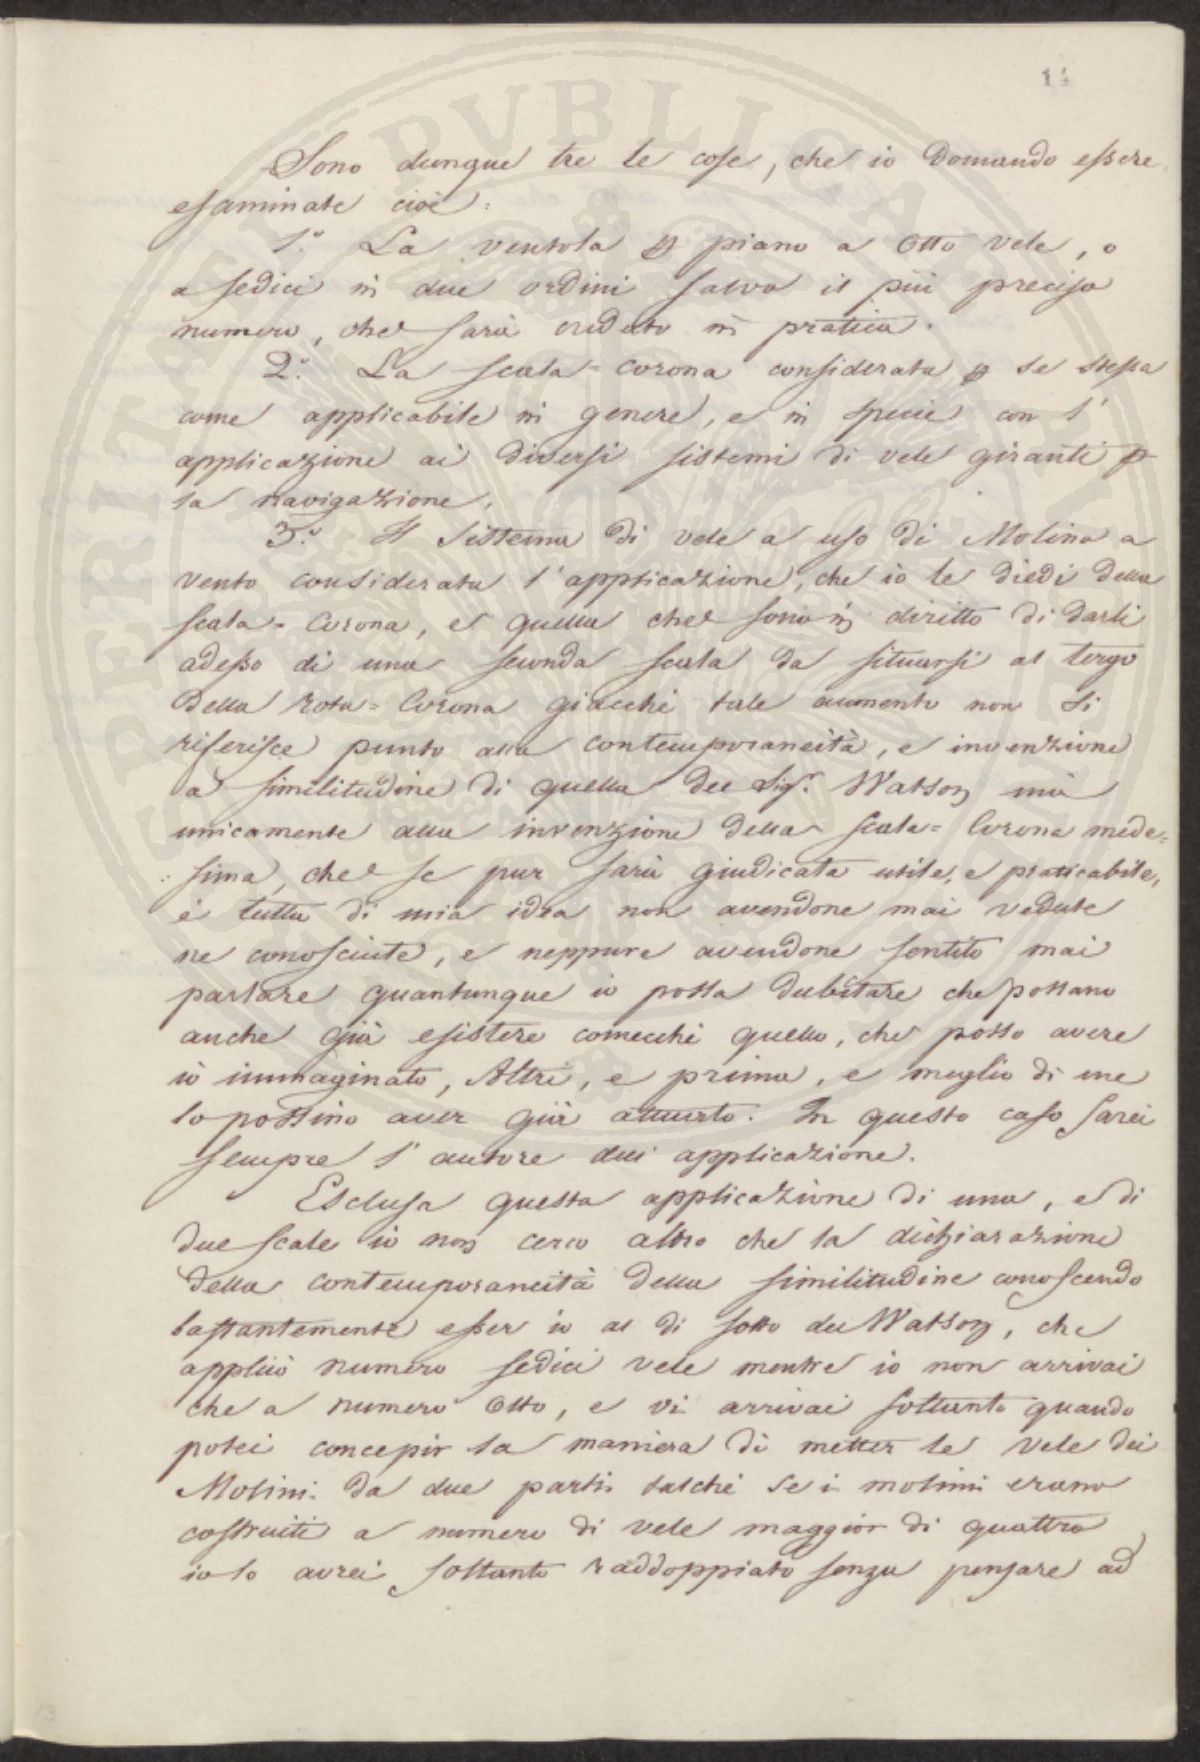 14
Sono dunque tre le cose, che io Domando essere
esaminate cioè:
1.° La ventola p piano a Otto vele, o
a sedici in due ordini salvo il più preciso
numero, che sarà creduto in pratica.
2.° La scala=Corona considerata p se stessa
come applicabile in genere, e in specie con l'
applicazione ai diversi sistemi di vele giranti p
la navigazione.
3.° Il Sistema di vele a uso di Molino a
vento considerata l'applicazione, che io le diedi della
scala=Corona, e quella che sono in diritto di darli
adesso di una seconda scala da situarsi al tergo
della rota=Corona giacchè tale aumento non si
riferisce punto alla contemporaneità, e invenzione
a similitudine di quella del Sig.r Watson mà
unicamente alla invenzione della scala=Corona mede=
sima, che se pur sarà giudicata utile, e praticabile,
è tutta di mia idea non avendone mai vedute
ne conosciute, e neppure avendone sentito mai
parlare quantunque io possa dubitare che possano
anche già esistere comecchè quello, che posso avere
io immaginato, Altri, e prima, e meglio di me
lo possino aver già attuato. In questo caso sarei
sempre l'autore dell' applicazione.
Esclusa questa applicazione di una, e di
due scale io non cerco altro che la dichiarazione
della contemporaneità della similitudine conoscendo
bastantemente esser io al di sotto del Watson, che
applicò numero sedici vele mentre io non arrivai
che a numero Otto, e vi arrivai soltanto quando
potei concepir la maniera di metter le vele dei
Molini da due parti talchè se i molini erano
costruiti a numero di vele maggior di quattro
io lo avrei soltanto raddoppiato senza pensare ad
13